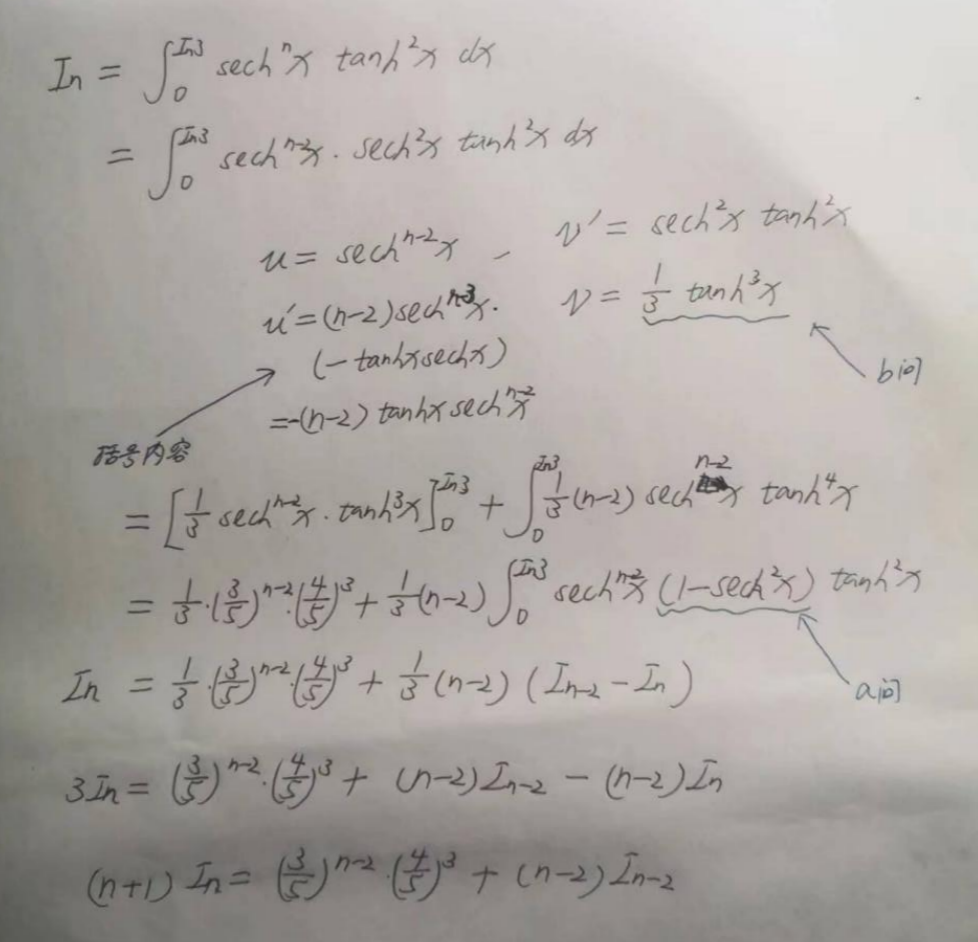 Iₙ = ∫₀^{ln3} sechⁿx tanh²x dx
= ∫₀^{ln3} sechⁿ⁻²x · sech²x tanh²x dx
u = sechⁿ⁻²x - v' = sech²x tanh²x
u' = (n-2) sechⁿ⁻³x · v = 1/3 tanh³x
(-tanhx sechx) b问
= -(n-2) tanhx sechⁿ⁻²x
括号内容
= [1/3 sechⁿ⁻²x · tanh³x]₀^{ln3} + ∫₀^{ln3} 1/3 (n-2) sechⁿ⁻²x tanh⁴x
= 1/3 · (3/5)ⁿ⁻² · (4/5)³ + 1/3 (n-2) ∫₀^{ln3} sechⁿ⁻²x (1-sech²x) tanh²x
Iₙ = 1/3 · (3/5)ⁿ⁻² · (4/5)³ + 1/3 (n-2) (Iₙ₋₂ - Iₙ) a问
3Iₙ = (3/5)ⁿ⁻² · (4/5)³ + (n-2) Iₙ₋₂ - (n-2) Iₙ
(n+1) Iₙ = (3/5)ⁿ⁻² · (4/5)³ + (n-2) Iₙ₋₂